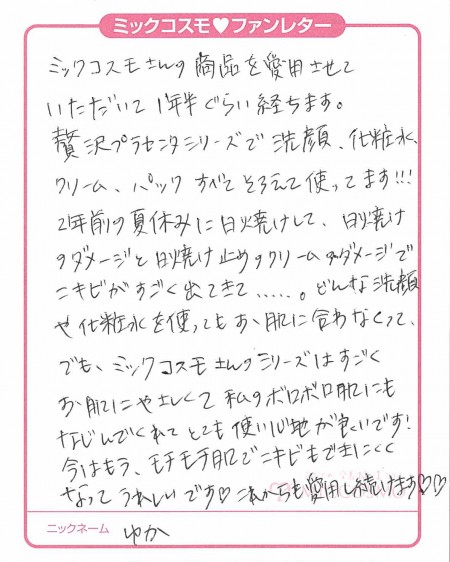 ミックコスモ♥ファンレター
ミックコスモさんの商品を愛用させて
いただいて1年半ぐらい経ちます。
贅沢プラセンタシリーズで洗顔、化粧水、
クリーム、パック すべてそろえて使ってます!!!
2年前の夏休みに日焼けして、日焼け
のダメージと日焼け止めのクリームのダメージで
ニキビがすごく出てきて……。どんな洗顔
や化粧水を使ってもお肌に合わなくって、
でも、ミックコスモさんのシリーズはすごく
お肌にやさしくて私のボロボロ肌にも
なじんでくれてとても使い心地が良いです!
今はもう、モチモチ肌でニキビもできにくく
なってうれしいです♡これからも愛用し続けます♡♡
ニックネーム ゆか